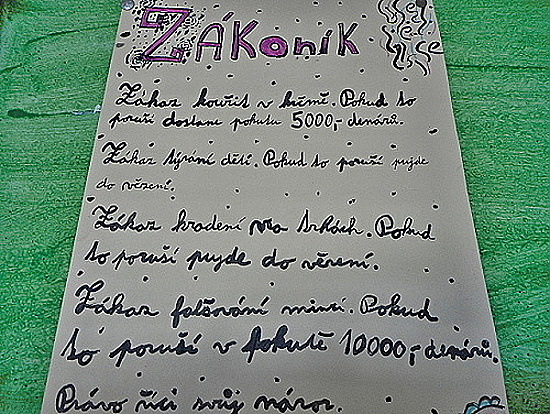 ZÁKoník
Zákaz kouřit v krčmě. Pokud to
poruší dostane pokutu 5000,-denárů.
Zákaz týrání dětí. Pokud to poruší pujde
do vězení.
Zákaz kradení na trhách. Pokud
to poruší pujde do věření.
Zákaz falšování mincí. Pokud
to poruší v pokutě 10000,-denárů.
Právo říci svůj názor.